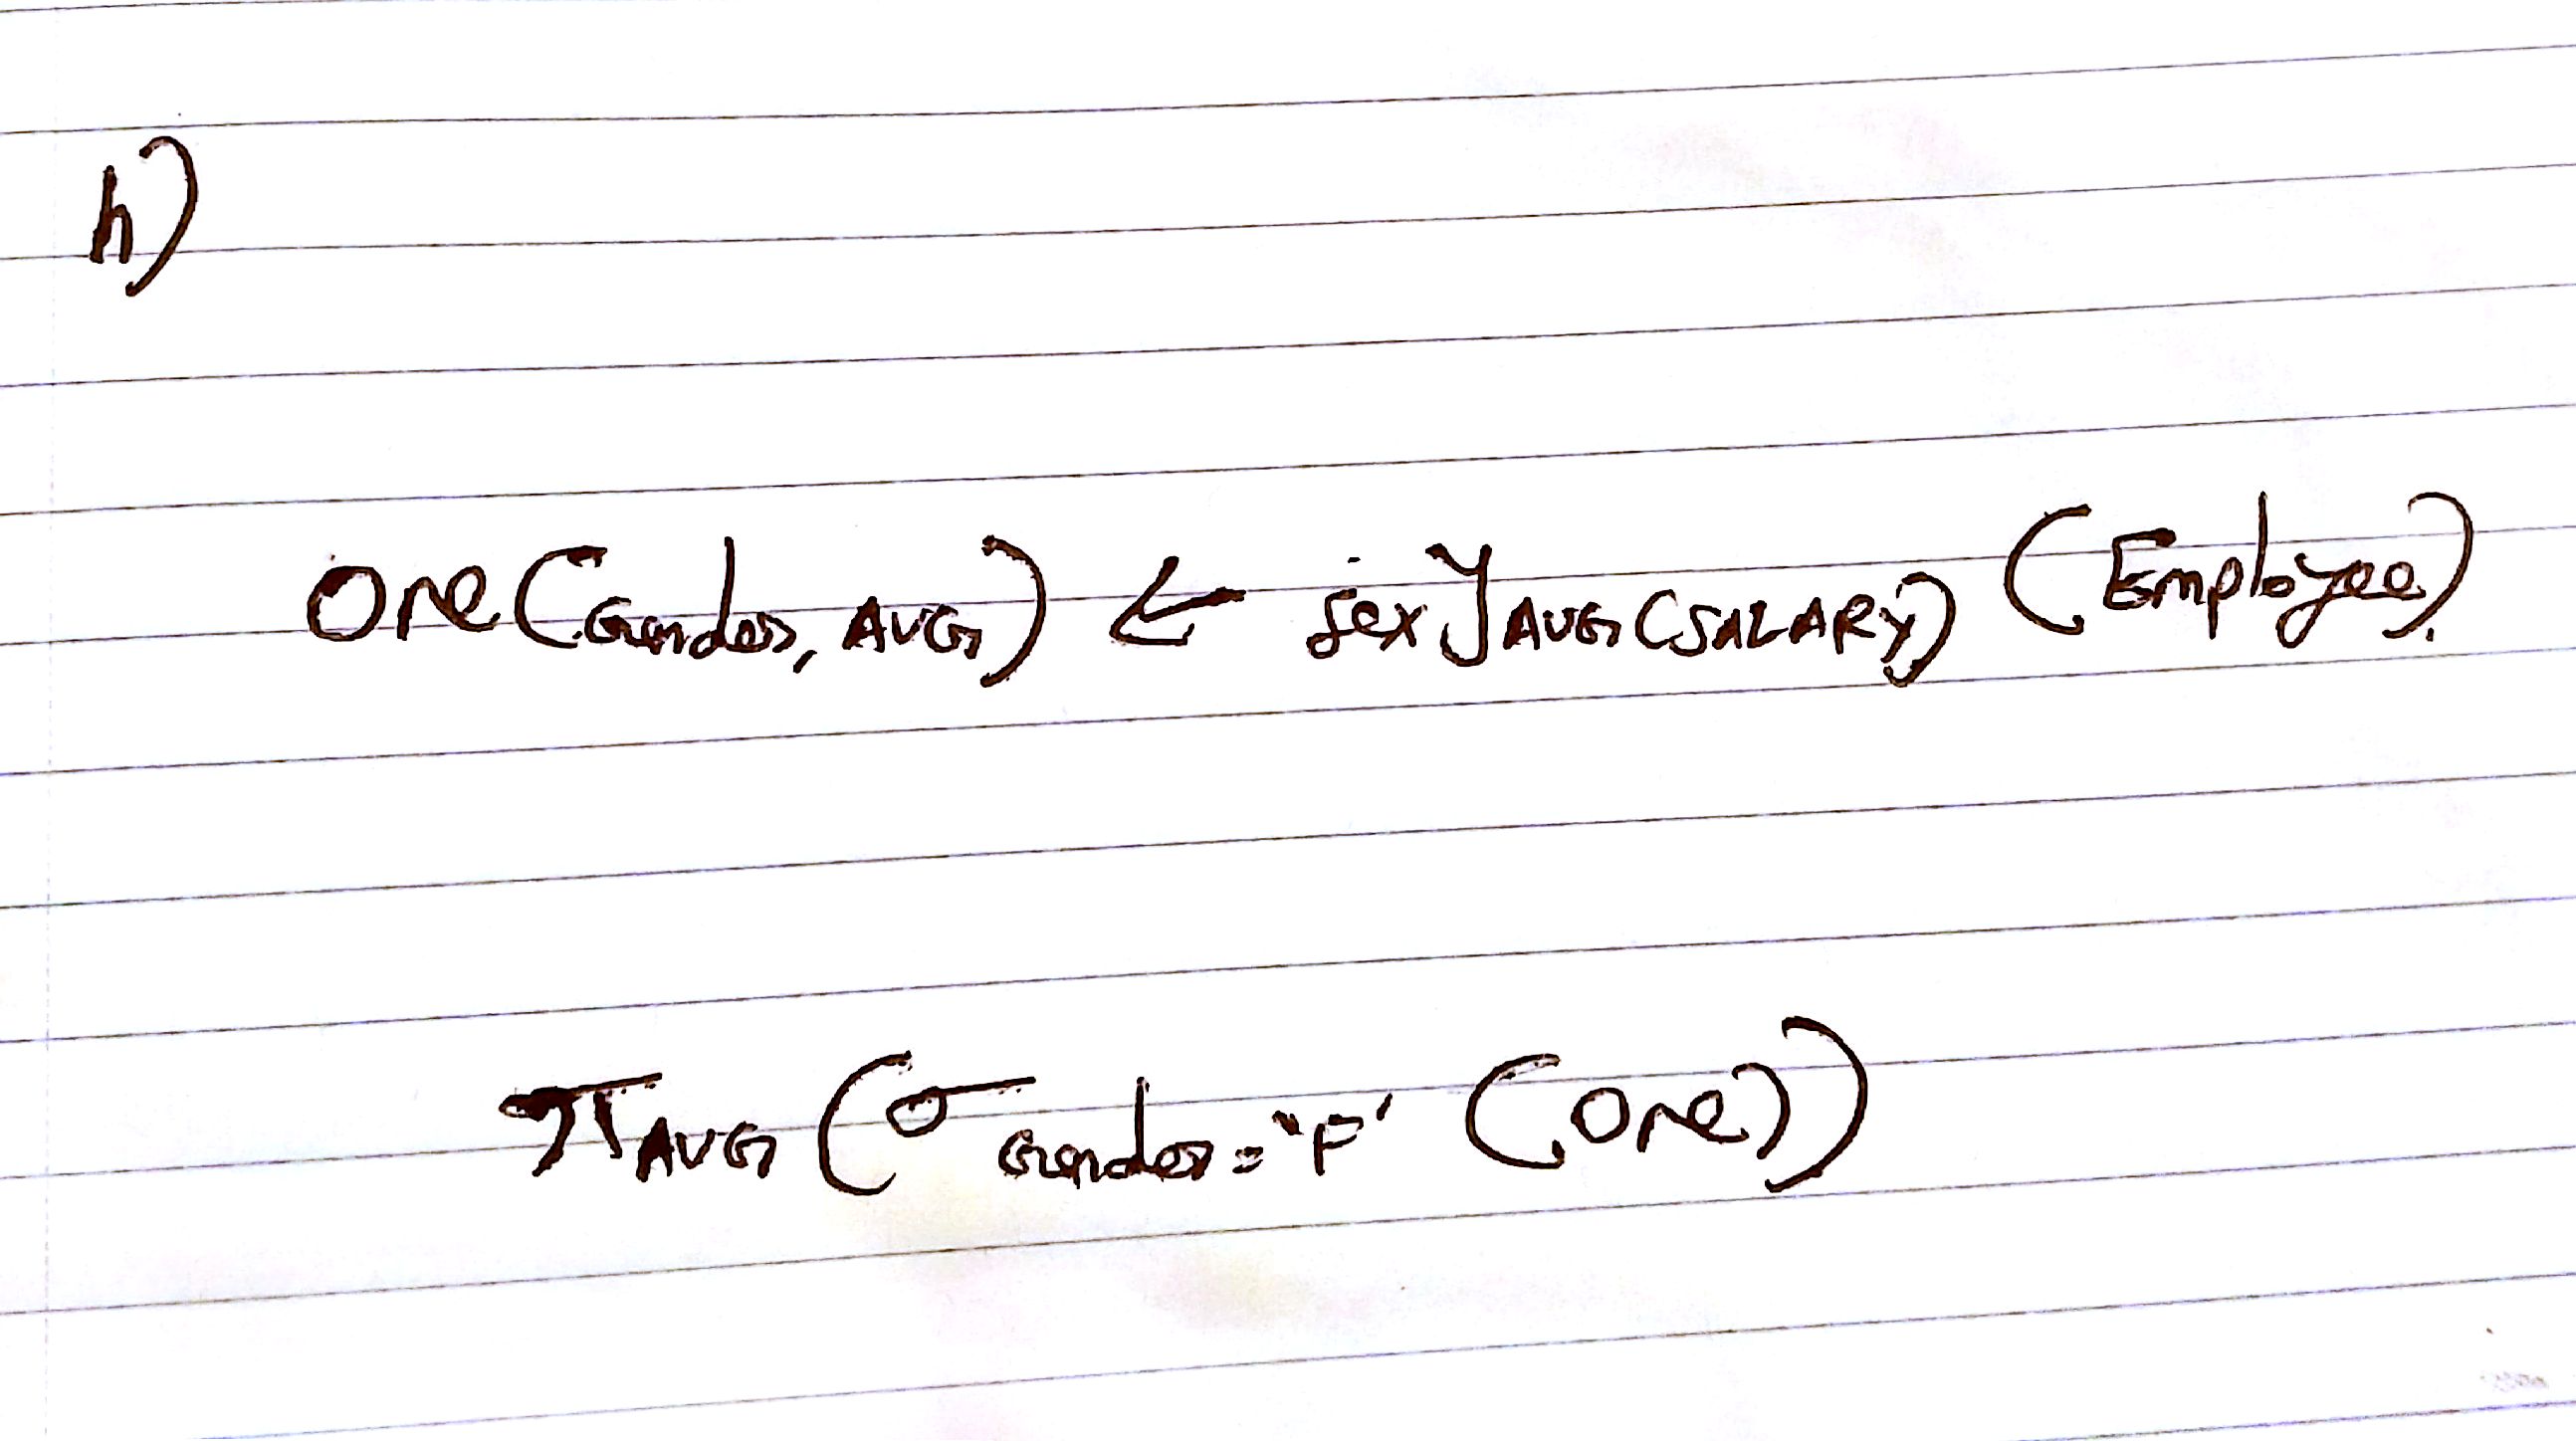 h)
One(Gender, AVG) ← sex ℑ AVG(SALARY) (Employee)
π AVG (σ Gender='F' (One))